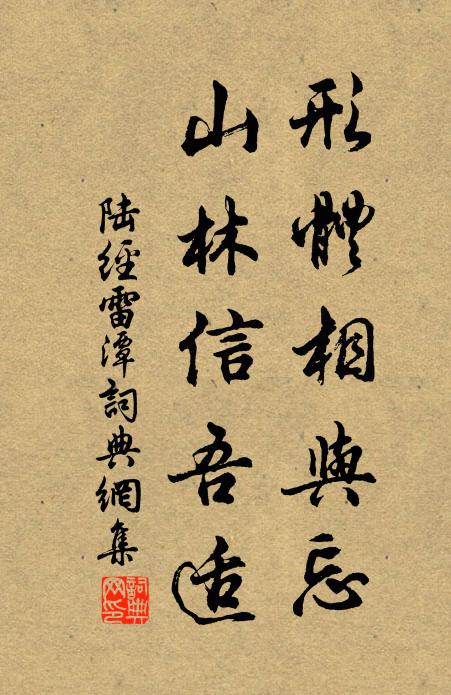 形體相與忘
山林信吾适
陸經雷潭詞典網集
詞典網印